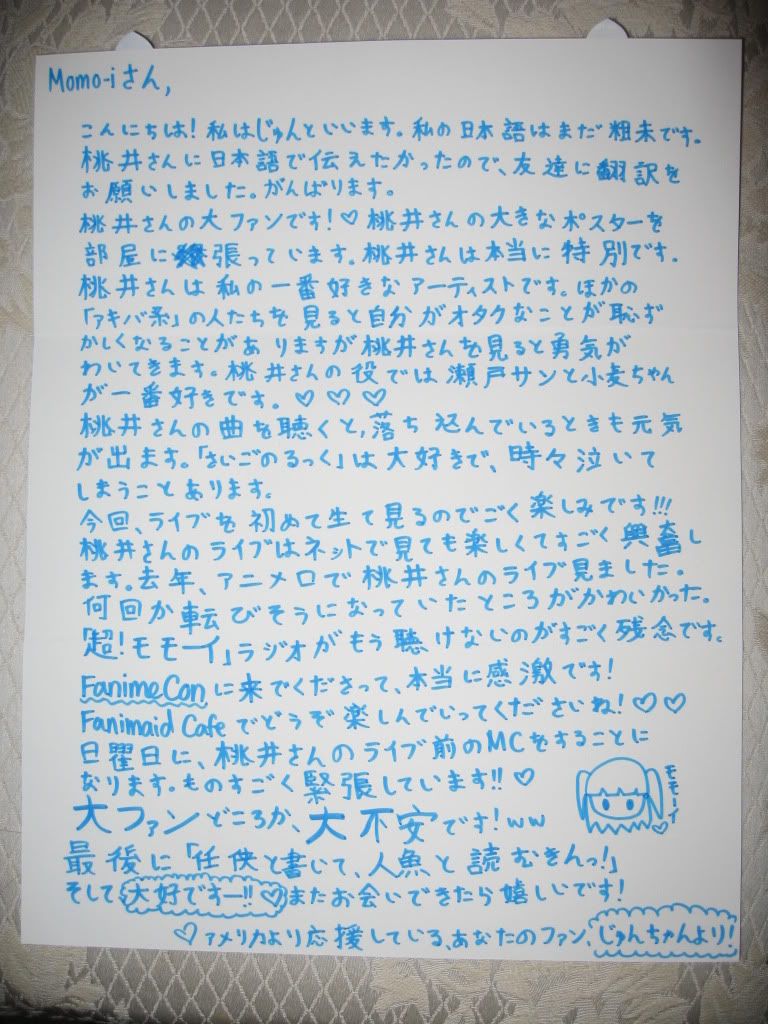 Momo-iさん,
こんにちは! 私はじゅんといいます。私の日本語はまだ粗末です。
桃井さんに日本語で伝えたかったので、友達に翻訳を
お願いしました。がんばります。
桃井さんの大ファンです!♡桃井さんの大きなポスターを
部屋に張っています。桃井さんは本当に特別です.
桃井さんは私の一番好きなアーティストです。ほかの
「アキバ系」の人たちを見ると自分がオタクなことが恥ず
かしくなることがありますが桃井さんを見ると勇気が
わいてきます。桃井さんの役では瀬戸サンと小麦ちゃん
が一番好きです。♡♡♡
桃井さんの曲を聴くと,落ち込んでいるときも元気
が出ます。「さいごのるっく」は大好きで、時々泣いて
しまうことあります。
今回、ライブを初めて生て見るのでごく楽しみです!!!
桃井さんのライブはネットで見ても楽しくてすごく興奮し
ます。去年、アニメロで桃井さんのライブ見ました。
何回か転びそうになっていたところがかわいかった。
「超!モモーイ」ラジオがもう聴けないのがすごく残念です。
FanimeConに来でくださって、本当に感激です!
Fanimaid Cafeでどうぞ楽しんでいってくださいね!♡♡
日曜日に、桃井さんのライブ前のMCをすることに
なります。ものすごく緊張しています!!♡
モモーイ
大ファンどころか、大不安です!ww
最後に「任侠と書いて、人魚と読むきんっ!」
そして大好ですー!!♡またお会いできたら嬉しいです!
♡アメリカより応援している、あなたのファン、じゅんちゃんより!